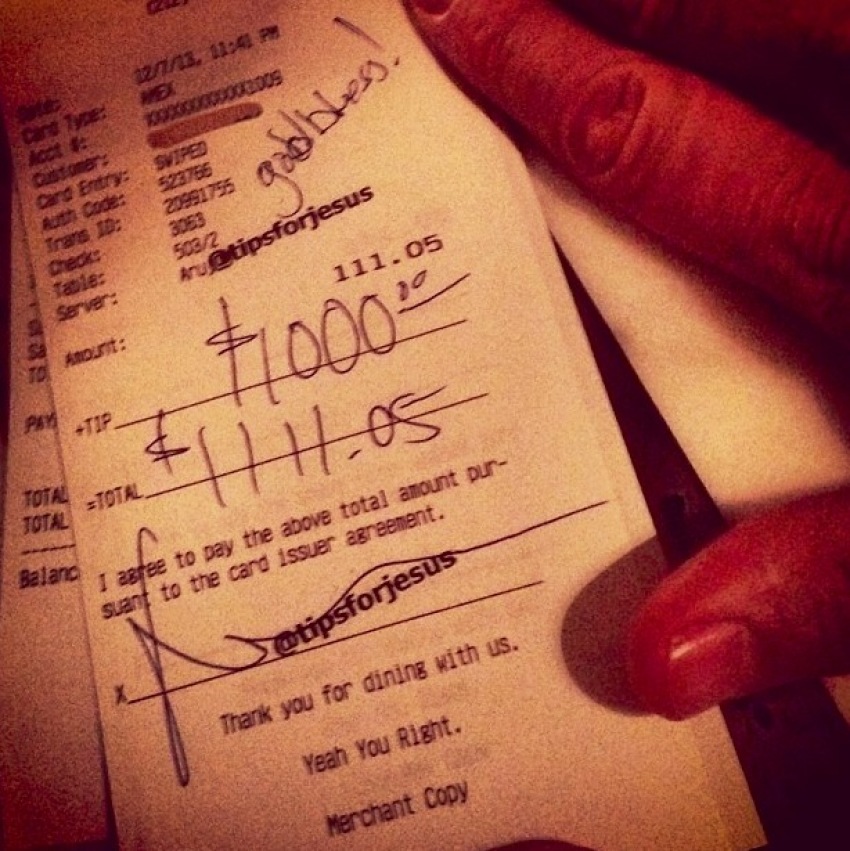 Date: 12/7/13, 11:41 PM
Card Type: AMEX
Acct #: XXXXXXXXXXX1009
Customer:
Card Entry: SWIPED
Auth Code: 523766
Trans ID: 20991755
Check: 3063
Table: 503/2
Server: Aru
god bless!
@tipsforjesus
Amount: 111.05
+TIP $1000.00
=TOTAL $1111.05
I agree to pay the above total amount pur-
suant to the card issuer agreement.
@tipsforjesus
X
Thank you for dining with us.
Yeah You Right.
Merchant Copy
TO
PAY
TOTAL
TOTAL
Balanc